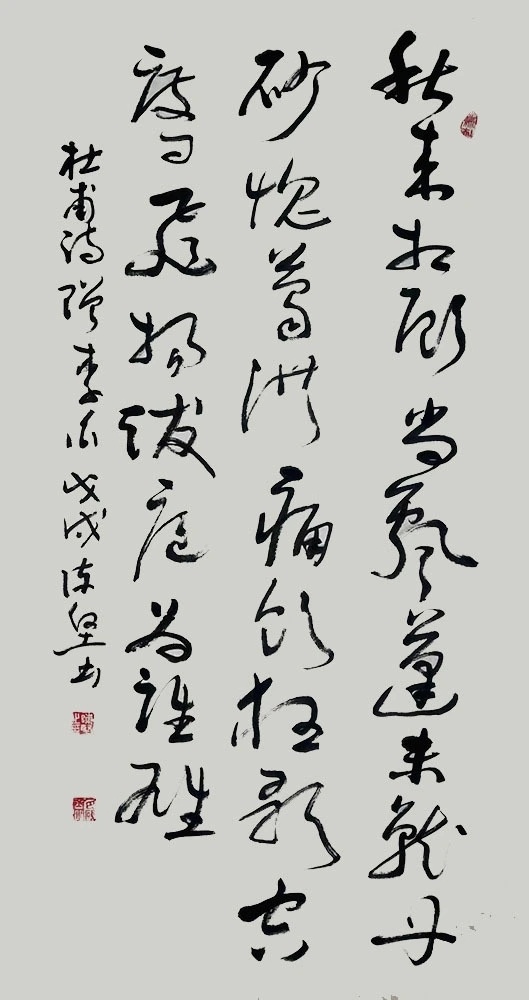 秋来相顾尚飘蓬未就丹
砂愧葛洪痛饮狂歌空
度日飛扬跋扈为誰雄
杜甫诗赠李白戊戌陈坚书